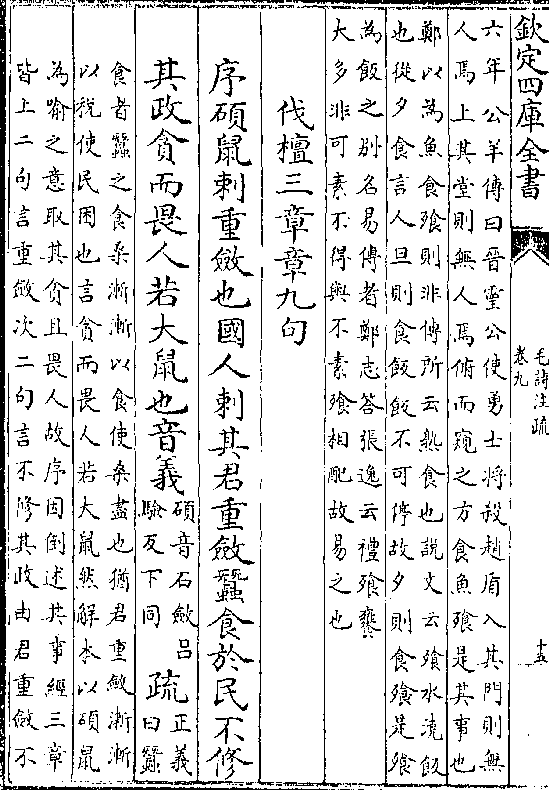 欽定四庫全書
毛詩注疏
卷九
十五
六年公羊傳曰晉靈公使勇士將殺趙盾入其門則無
人焉上其堂則無人焉俯而窺之方食魚飱是其事也
鄭以為魚食飱則非傳所云熟食也說文云飱水澆飯
也從夕食言人旦則食飯飯不可停故夕則食飱是飱
為飯之別名易傳者鄭志答張逸云禮飱饔
大多非可素不得與不素飱相配故易之也
伐檀三章章九句
序碩鼠刺重斂也國人刺其君重斂蠶食於民不修
其政貪而畏人若大鼠也音義
碩音石斂呂
驗反下同
疏
正義
曰蠶
食者蠶之食桑漸漸以食使桑盡也猶君重斂漸漸
以稅使民困也言貪而畏人若大鼠然解本以碩鼠
為喻之意取其貪且畏人故序因倒述其事經三章
皆上二句言重斂次二句言不修其政由君重斂不